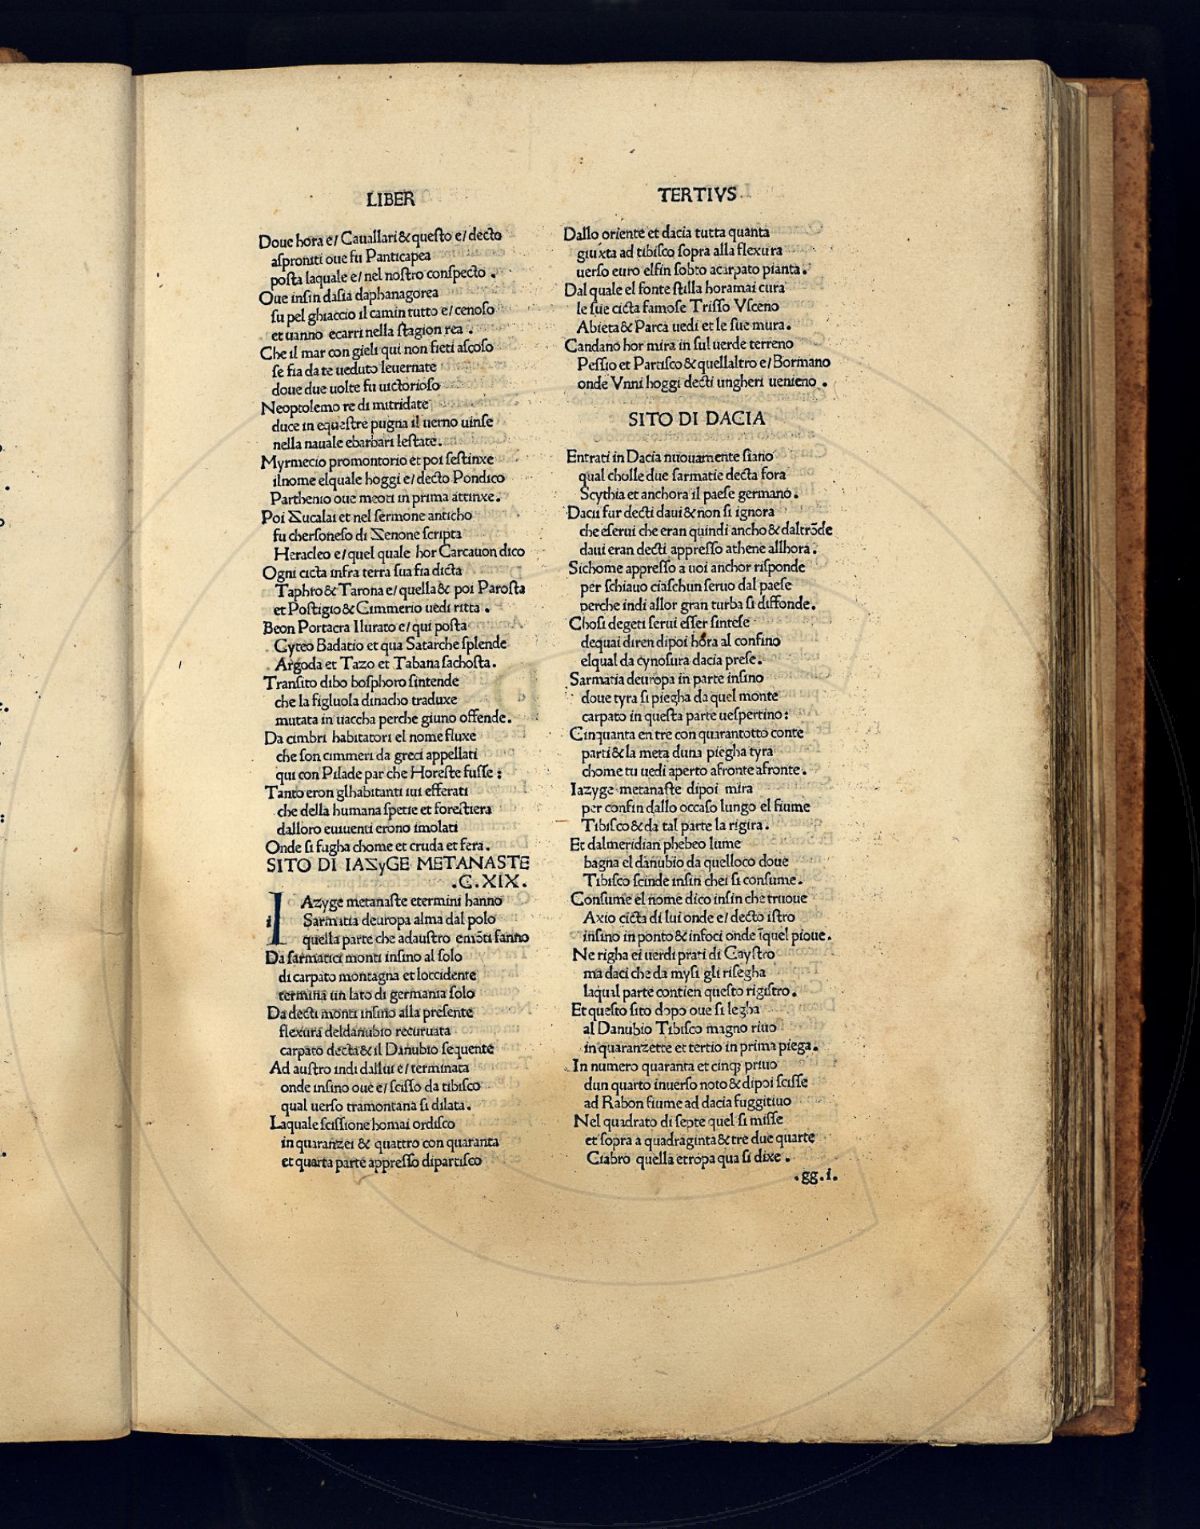 LIBER
Doue hora e/ Cauallari & questo e/ decto
asproniti oue fu Panticapea
posta laquale e/ nel nostro conspecto .
Oue insin dasia daphanagorea
su pel ghiaccio il camin tutto e/ cenoso
et uanno ecarri nella stagion rea .
Che il mar con gieli qui non fieti ascoso
se fia da te ueduto leuernate
doue due uolte fu uictorioso
Neoptolemo re di mitridate
duce in equestre pugna il uerno uinse
nella nauale ebarbari lestate.
Myrmecio promontorio et poi sestinxe
ilnome elquale hoggi e/ decto Pondico
Parthenio oue meoti in prima attinxe.
Poi Zucalai et nel sermone anticho
fu chersoneso di Zenone scripta
Heracleo e/ quel quale hor Carcauon dico
Ogni cicta infra terra sua fia dicta
Taphro & Tarona e/ quella & poi Parosta
et Postigio & Cimmerio uedi ritta .
Beon Portacra Ilurato e/ qui posta
Cyteo Badatio et qua Satarche splende
Argoda et Tazo et Tabana sachosta.
Transito dibo bosphoro sintende
che la figluola dinacho traduxe
mutata in uaccha perche giuno offende.
Da cimbri habitatori el nome fluxe
che son cimmeri da greci appellati
qui con Pilade par che Horeste fusse :
Tanto eron glhabitanti iui efferati
che della humana spetie et forestiera
dalloro euiuenti erono imolati
Onde si fugha chome et cruda et fera.
SITO DI IAZyGE METANASTE
.C.XIX.
I
i
Azyge metanaste etermini hanno
Sarmatia deuropa alma dal polo
quella parte che adaustro emōti fanno
Da sarmatici monti insino al solo
di carpato montagna et loccidente
termina un lato di germania solo
Da decti monti insino alla presente
flexura deldanubio recuruata
carpato decta & il Danubio sequente
Ad austro indi dallui e/ terminata
onde insino oue e/ scisso da tibisco
qual uerso tramontana si dilata.
Laquale scissione homai ordisco
in quaranzei & quattro con quaranta
et quarta parte appresso dipartisco
TERTIVS
Dallo oriente et dacia tutta quanta
giuxta ad tibisco sopra alla flexura
uerso euro elfin sobto acarpato pianta.
Dal quale el fonte stilla horamai cura
le sue cicta famose Trisso Vsceno
Abieta & Parca uedi et le sue mura.
Candano hor mira in sul uerde terreno
Pessio et Partisco & quellaltro e/ Bormano
onde Vnni hoggi decti ungheri uenieno .
SITO DI DACIA
Entrati in Dacia nuouamente siano
qual cholle due sarmatie decta fora
Scythia et anchora il paese germano.
Dacii fur decti daui & non si ignora
che eserui che eran quindi ancho & daltrōde
daui eran decti appresso athene allhora.
Sichome appresso a uoi anchor risponde
per schiauo ciaschun seruo dal paese
perche indi allor gran turba si diffonde.
Chosi degeti serui esser sintese
dequai diren dipoi hora al confino
elqual da cynosura dacia prese.
Sarmatia deuropa in parte insino
doue tyra si piegha da quel monte
carpato in questa parte uespertino:
Cinquanta en tre con quarantotto conte
parti & la meta duna piegha tyra
chome tu uedi aperto afronte afronte.
Iazyge metanaste dipoi mira
per confin dallo occaso lungo el fiume
Tibisco & da tal parte la rigira.
Et dalmeridian phebeo lume
bagna el danubio da quelloco doue
Tibisco scinde insin chei si consume.
Consume el nome dico insin che truoue
Axio cicta di lui onde e/ decto istro
insino in ponto & infoci onde īquel pioue.
Ne righa ei uerdi prati di Caystro
ma daci che da mysi gli risegha
laqual parte contien questo rigistro.
Et questo sito dopo oue si legha
al Danubio Tibisco magno riuo
in quaranzette et tertio in prima piega.
In numero quaranta et cinqꝫ priuo
dun quarto inuerso noto & dipoi scisse
ad Rabon fiume ad dacia fuggitiuo
Nel quadrato di septe quel si misse
et sopra a quadraginta & tre due quarte
Ciabro quella etropa qua si dixe .
.gg.i.